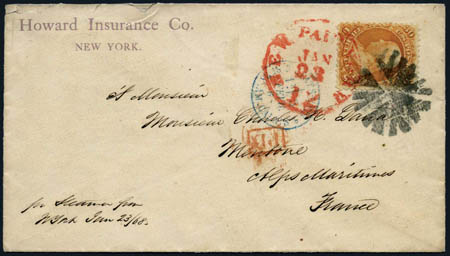 Howard Insurance Co.
NEW YORK.
NEW
PAID
JAN
23
12
A Monsieur
Monsieur Charles H. Dalla
Mentone
Alps Maritimes
France
pr Steamer from
N York Jan 23/68.